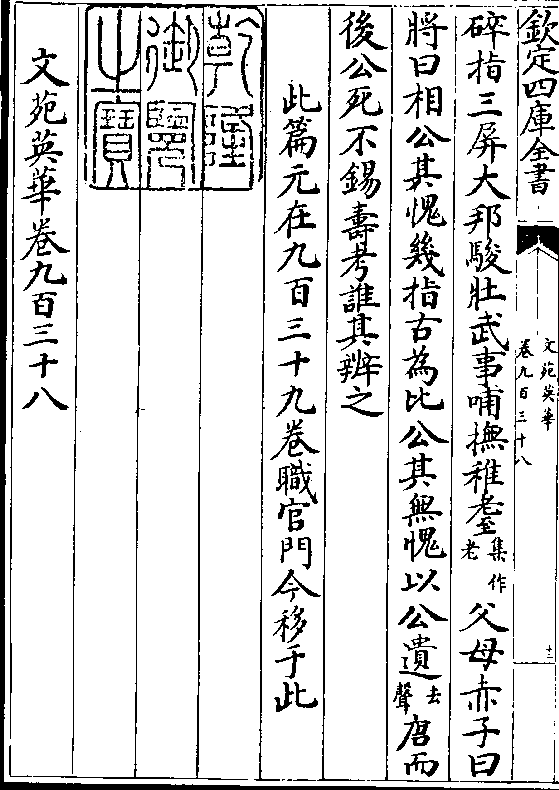 欽定四庫全書
文苑英華
卷九百三十八
十三
碎指三屏大邦駿壯武事哺撫稚耋集作老父母赤子曰
將曰相公其愧幾指古為比公其無愧以公遺去聲唐而
後公死不錫壽考誰其辨之
此篇元在九百三十九卷職官門今移于此
乾隆御覽之寶
文苑英華卷九百三十八